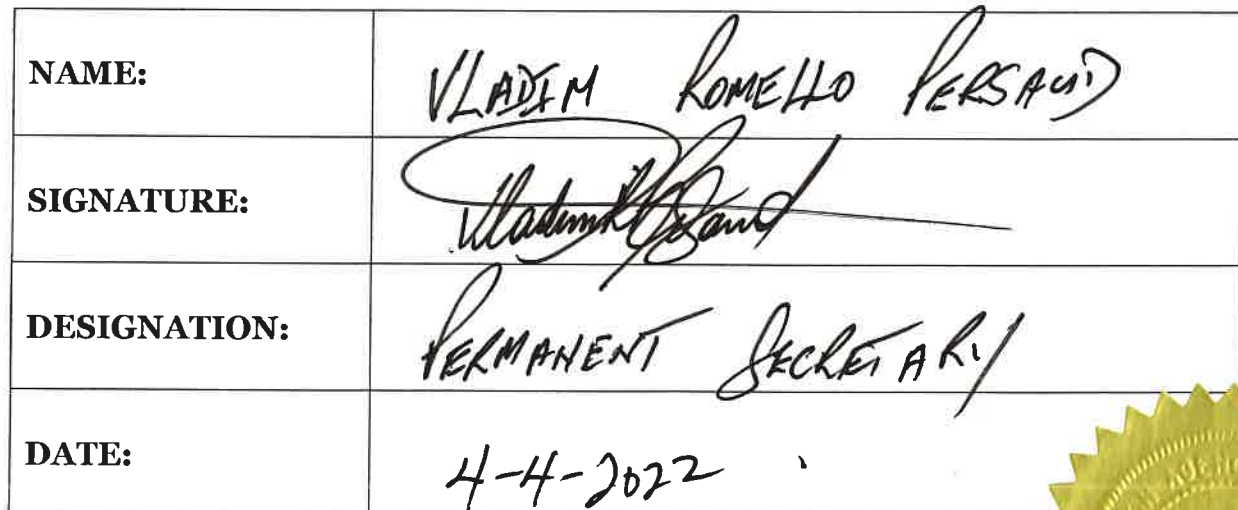 NAME: VLADIM ROMELLO PERSAUD
SIGNATURE: Vladim R Persaud
DESIGNATION: PERMANENT SECRETARY
DATE: 4-4-2022